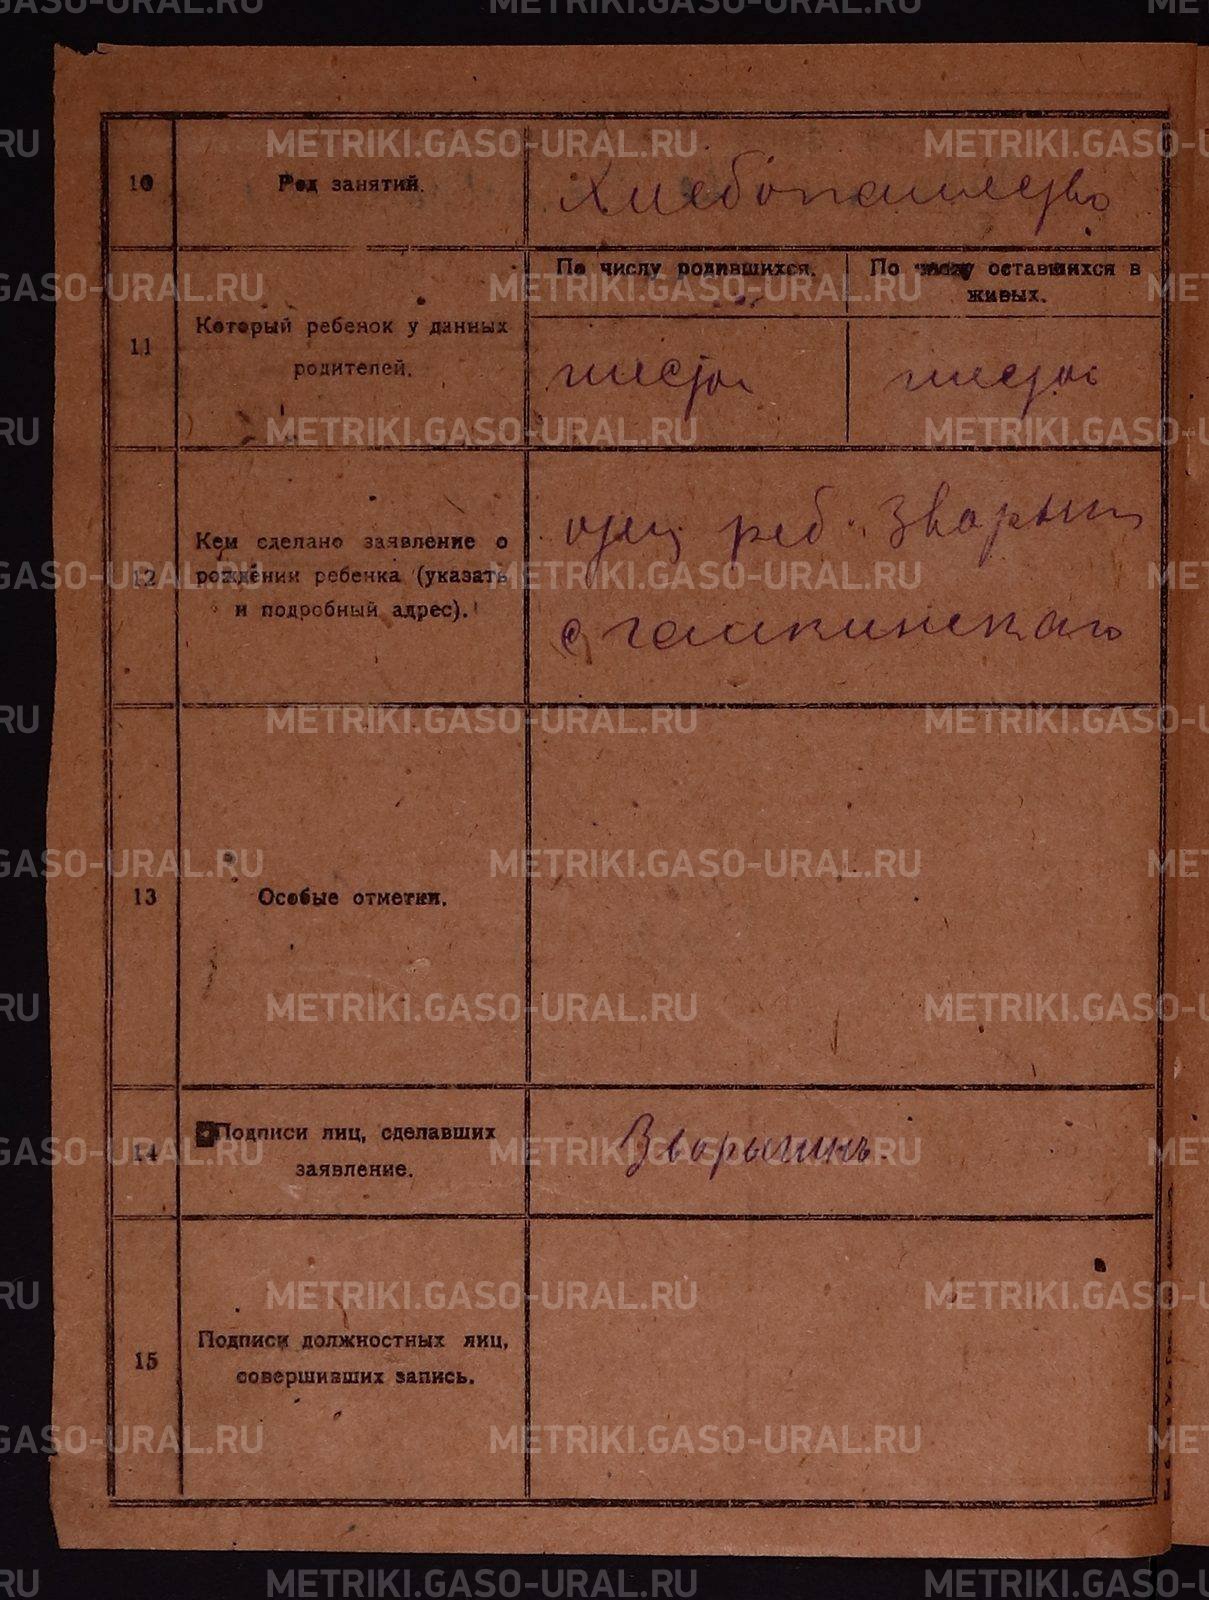 10
Род занятий.
Хлебопашество
11
Который ребенок у данных
родителей.
По числу родившихся.
По числу оставшихся в
живых.
шестой
шестой
12
Кем сделано заявление о
рождении ребенка (указать
и подробный адрес).
отец реб. Зварыгин
с
13
Особые отметки.
14
Подписи лиц, сделавших
заявление.
Зварыгинъ.
15
Подписи должностных лиц,
совершивших запись.
METRIKI.GASO-URAL.RU